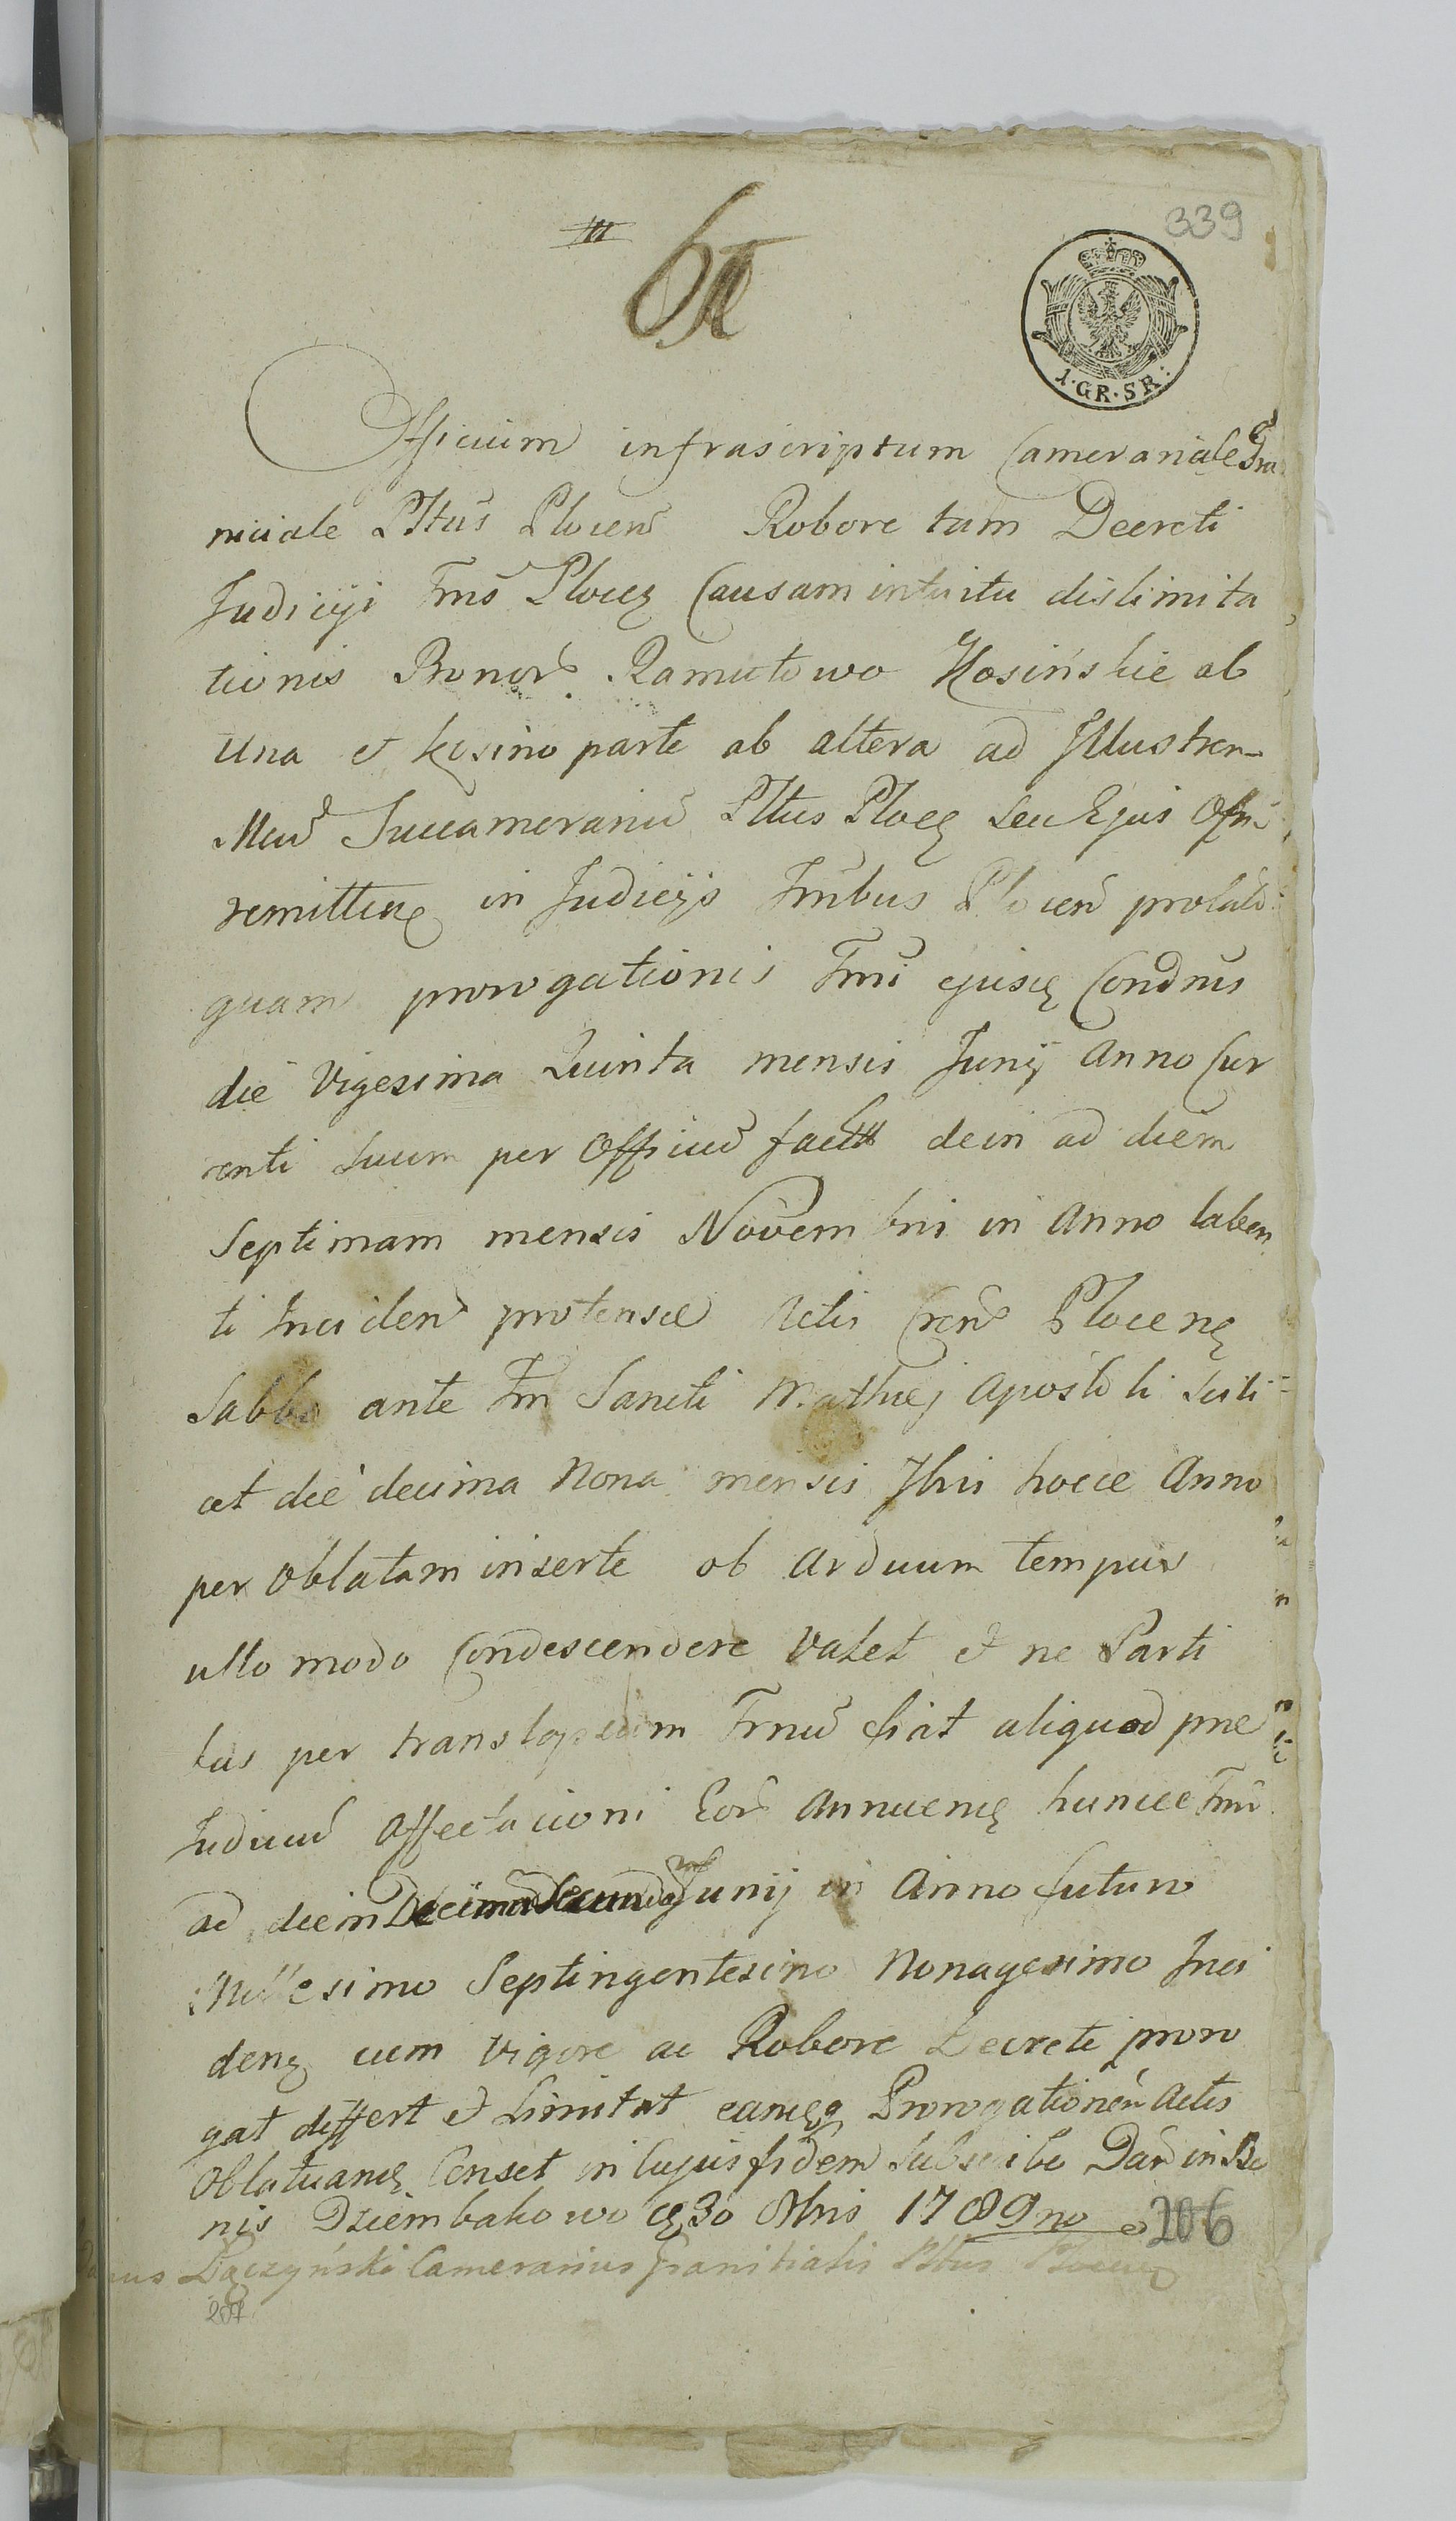 339
1·GR·SR:
Officium infrascriptum Cameranale Gra
niciale Pltus Plocen Robore tam Decreti
Judicyi Trris Plocen Causam intuitu dislimita
tionis Bonor Ramutowo Kosińskie ab
una et Kosino parte ab altera ad Illustrem
Mcum Succamerariu Pltus Ploceñ seu Ejus Offm
remitten in Judicijs Trribus Plocen prolati
quam prorogationis Trmi ejusq Condnis
die Vigesima Quinta mensis Junij Anno Cur
renti suum per Officiu factæ dein ad diem
Septimam mensis Novembri in Anno laben
ti Inciden protensæ Actis Cren Plocenq
Sabbo ante Fm Sancti Mathej Apostoli scili
cet die decima Nona mensis 7bris hocce Anno
per oblatam inserte ob arduum tempus
ullo modo Condescendere Valet et ne Parti
bus per translapsum Trmu fiat aliquod prae
Judiciu Affectacioni Eor Annuenq huncce Trm
ad diem Junij in Anno futuro
Millesimo Septingentesimo Nonagesimo Inci
denq cum Vigore ac Robore Decreti proro
gat differt et Limitat eamq Prorogationem Actis
Oblatuanq Censet in Cujus fidem Subscibi Dat in Bo
nis Dziembakowo 30 8bris 1789no
206
Łączyński Camerarius Granitialis Pltus Plocen
207